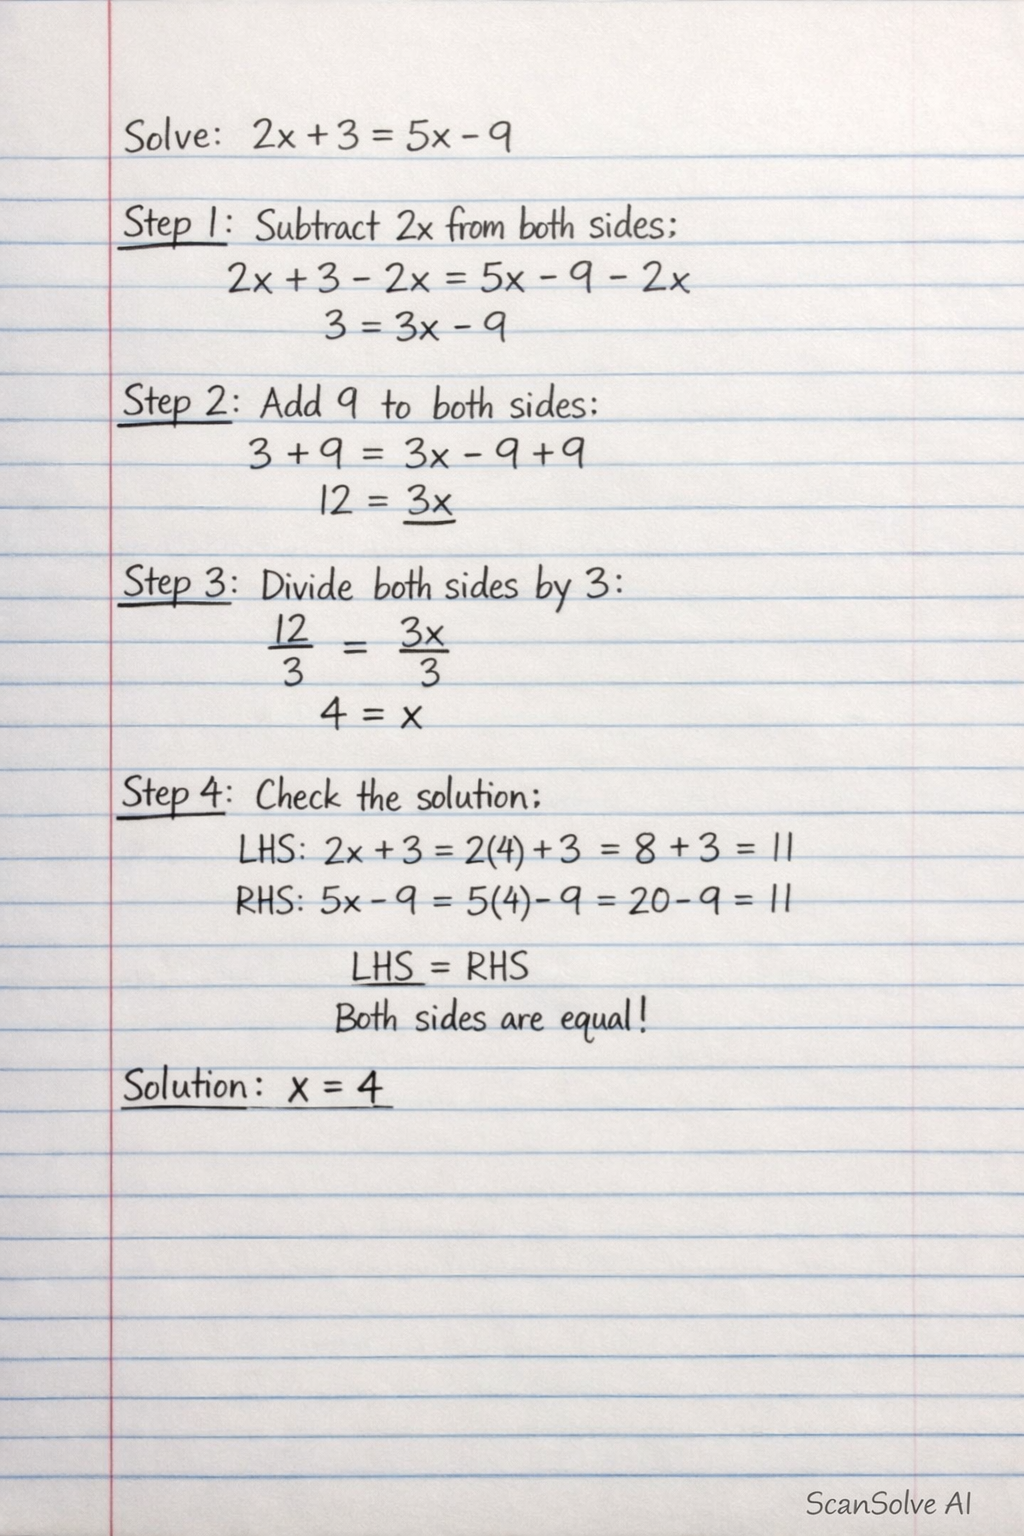 Solve: 2x + 3 = 5x - 9
Step 1: Subtract 2x from both sides:
2x + 3 - 2x = 5x - 9 - 2x
3 = 3x - 9
Step 2: Add 9 to both sides:
3 + 9 = 3x - 9 + 9
12 = 3x
Step 3: Divide both sides by 3:
12/3 = 3x/3
4 = x
Step 4: Check the solution:
LHS: 2x + 3 = 2(4) + 3 = 8 + 3 = 11
RHS: 5x - 9 = 5(4) - 9 = 20 - 9 = 11
LHS = RHS
Both sides are equal!
Solution: x = 4
ScanSolve AI